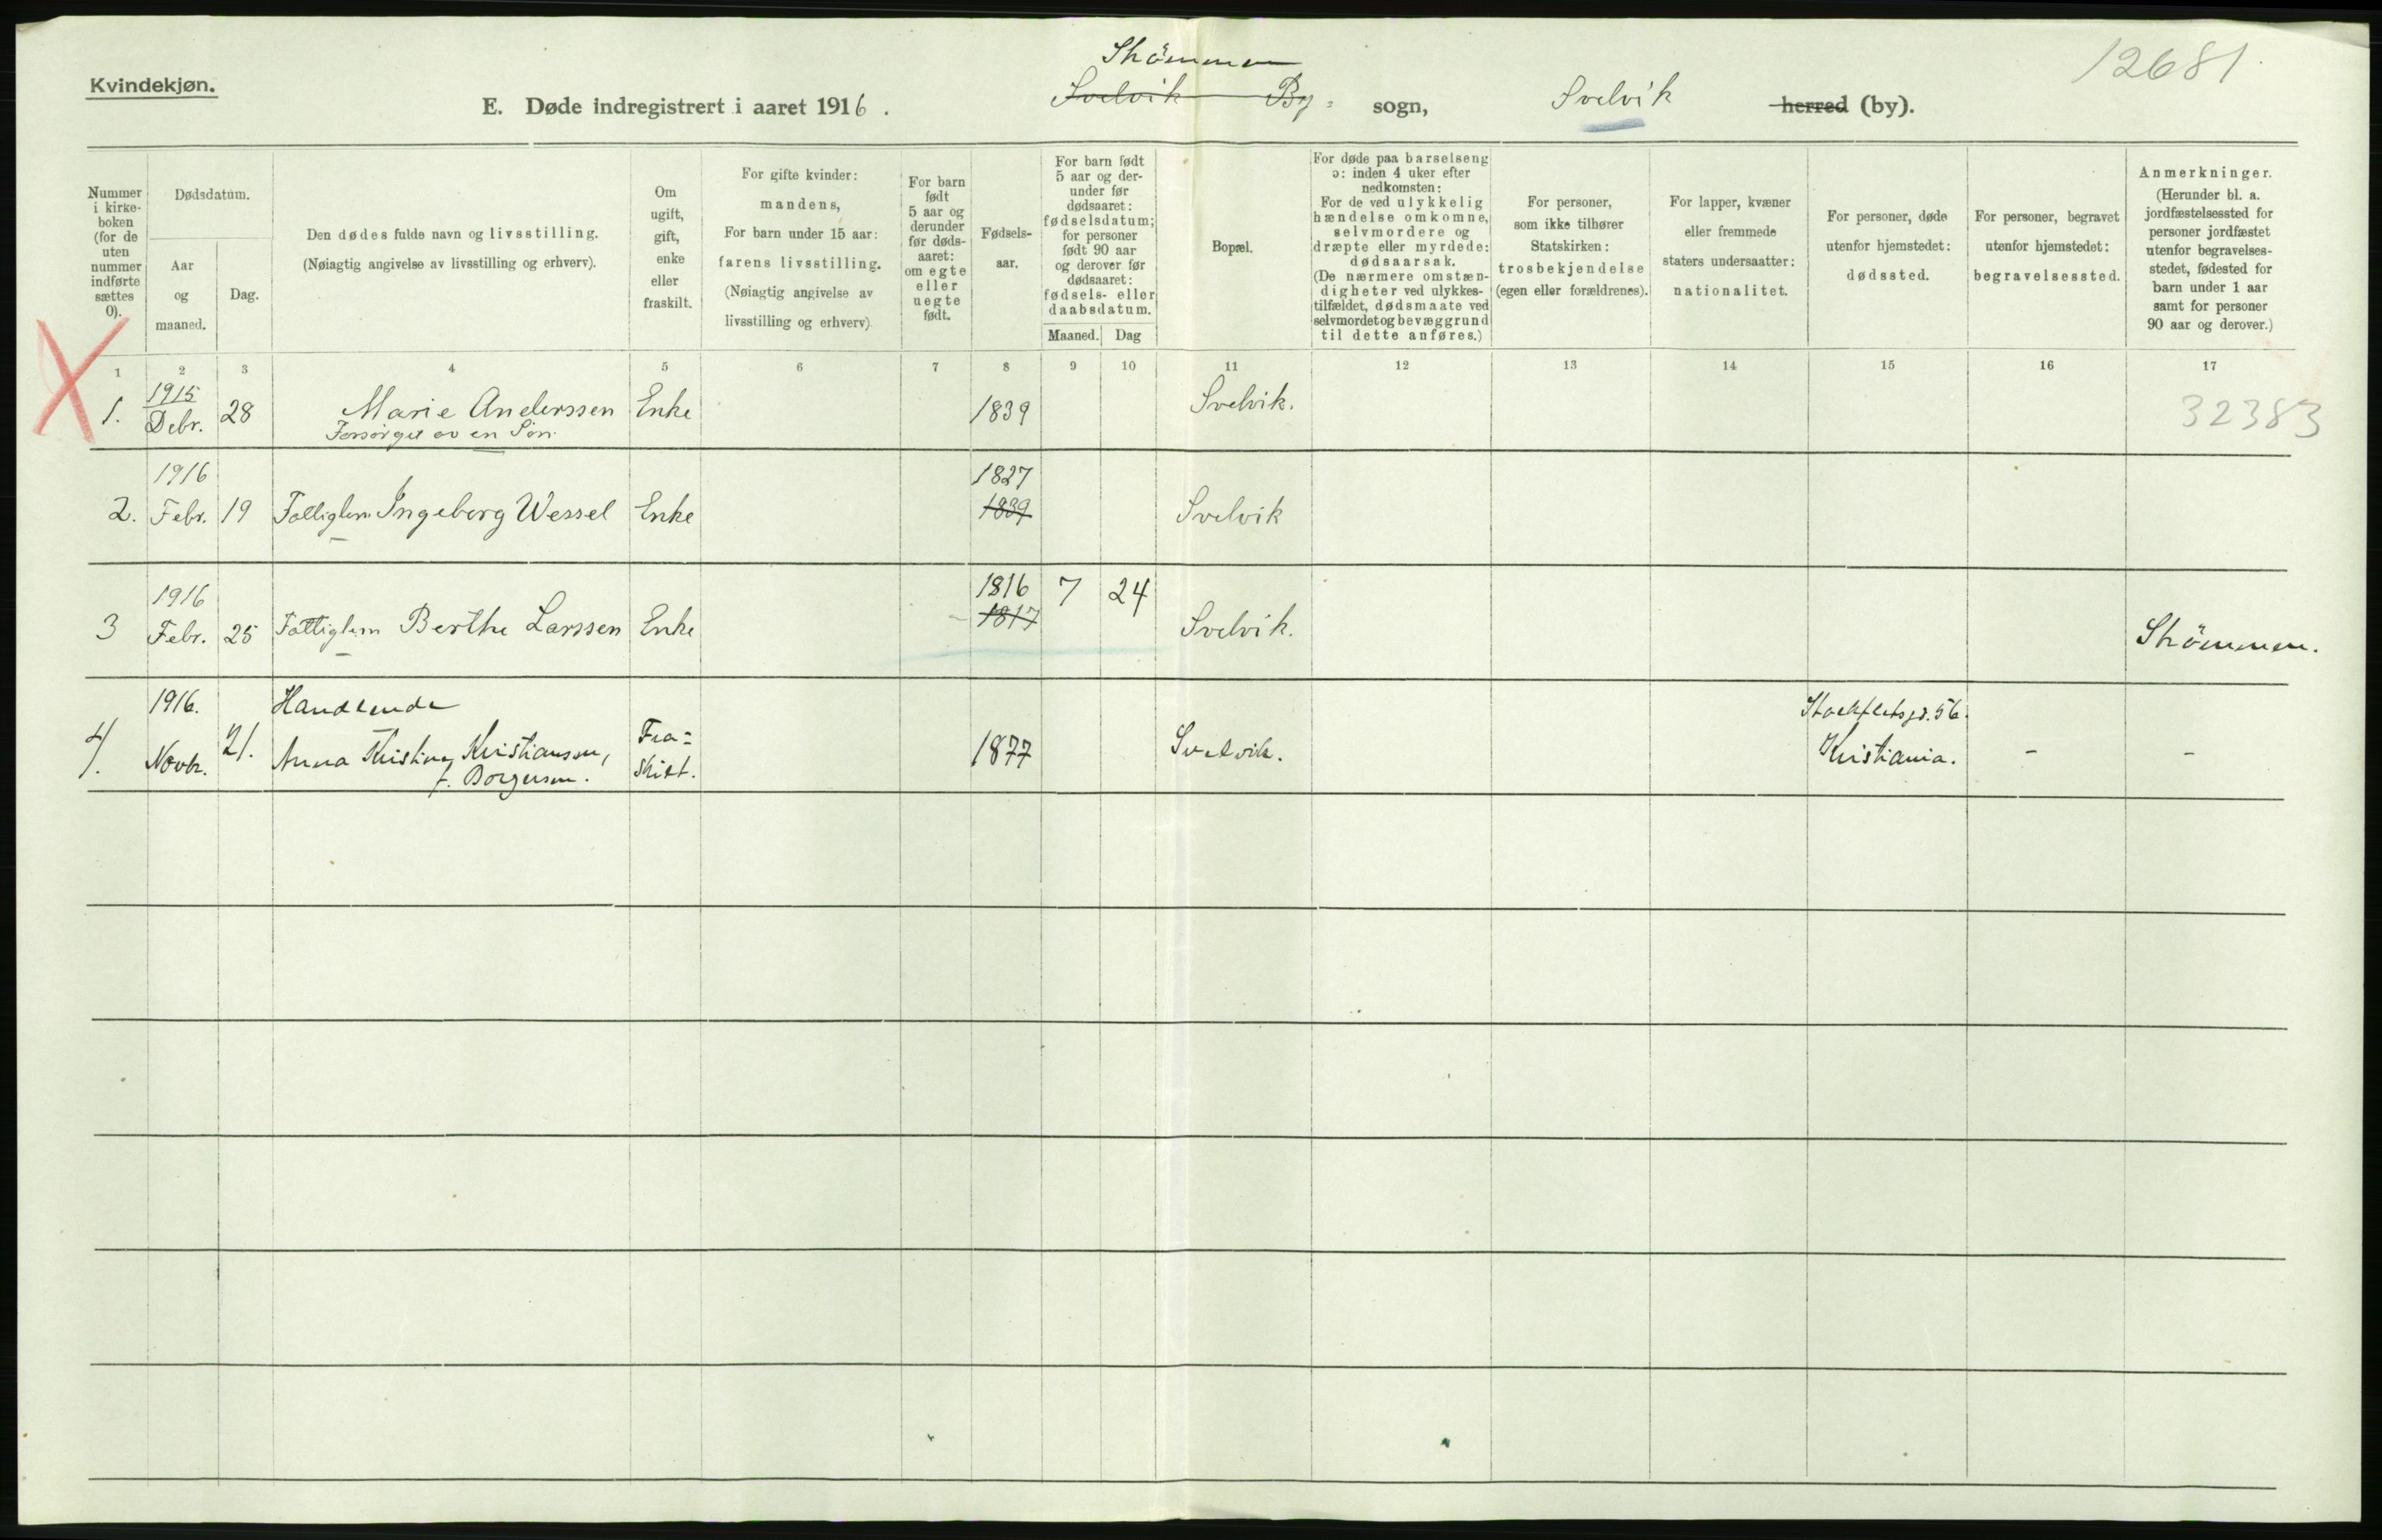 Kvindekjøn.
12681.
Strömmen
E. Døde indregistrert i aaret 1916. Svelvik By: sogn, Svelvik herred (by).
Nummer
i kirke-
boken
(for de
uten
nummer
indførte
sættes
0).
Dødsdatum.
Aar
og
maaned.
Dag.
Den dødes fulde navn og livsstilling.
(Nøiagtig angivelse av livsstilling og erhverv).
Om
ugift,
gift,
enke
eller
fraskilt.
For gifte kvinder:
mandens,
For barn under 15 aar:
farens livsstilling.
(Nøiagtig angivelse av
livsstilling og erhverv)
For barn
født
5 aar og
derunder
før døds-
aaret:
om egte
eller
uegte
født.
Fødsels-
aar.
For barn født
5 aar og der-
under før
dødsaaret:
fødselsdatum;
for personer
født 90 aar
og derover før
dødsaaret:
fødsels- eller
daabsdatum.
Maaned. Dag
Bopæl.
For døde paa barselseng
ɔ: inden 4 uker efter
nedkomsten:
For de ved ulykkelig
hændelse omkomne,
selvmordere og
dræpte eller myrdede:
dødsaarsak.
(De nærmere omstæn-
digheter ved ulykkes-
tilfældet, dødsmaate ved
selvmordet og bevæggrund
til dette anføres.)
For personer,
som ikke tilhører
Statskirken:
trosbekjendelse
(egen eller forældrenes).
For lapper, kvæner
eller fremmede
staters undersaatter:
nationalitet.
For personer, døde
utenfor hjemstedet:
dødssted.
For personer, begravet
utenfor hjemstedet:
begravelsessted.
Anmerkninger.
(Herunder bl. a.
jordfæstelsessted for
personer jordfæstet
utenfor begravelses-
stedet, fødested for
barn under 1 aar
samt for personer
90 aar og derover.)
1 2 3 4 5 6 7 8 9 10 11 12 13 14 15 16 17
1915
1. Debr. 28 Marie Anderssen Enke 1839 Svelvik. 32383
Forsörget av en Sön.
1916 1827
2. Febr. 19 Fattiglem Ingeborg Wessel Enke 1839 Svelvik
1916 1816 7 24
1817
3 Febr. 25 Fattiglem Berthe Larssen Enke Svelvik. Strömmen.
1916. Handlende Stockfletsgd. 56.
4. Novbr. 21. Anna Kristine Kristianssen, Fra= 1877 Svelvik. Kristiania. - -
f. Borgersen. skilt.